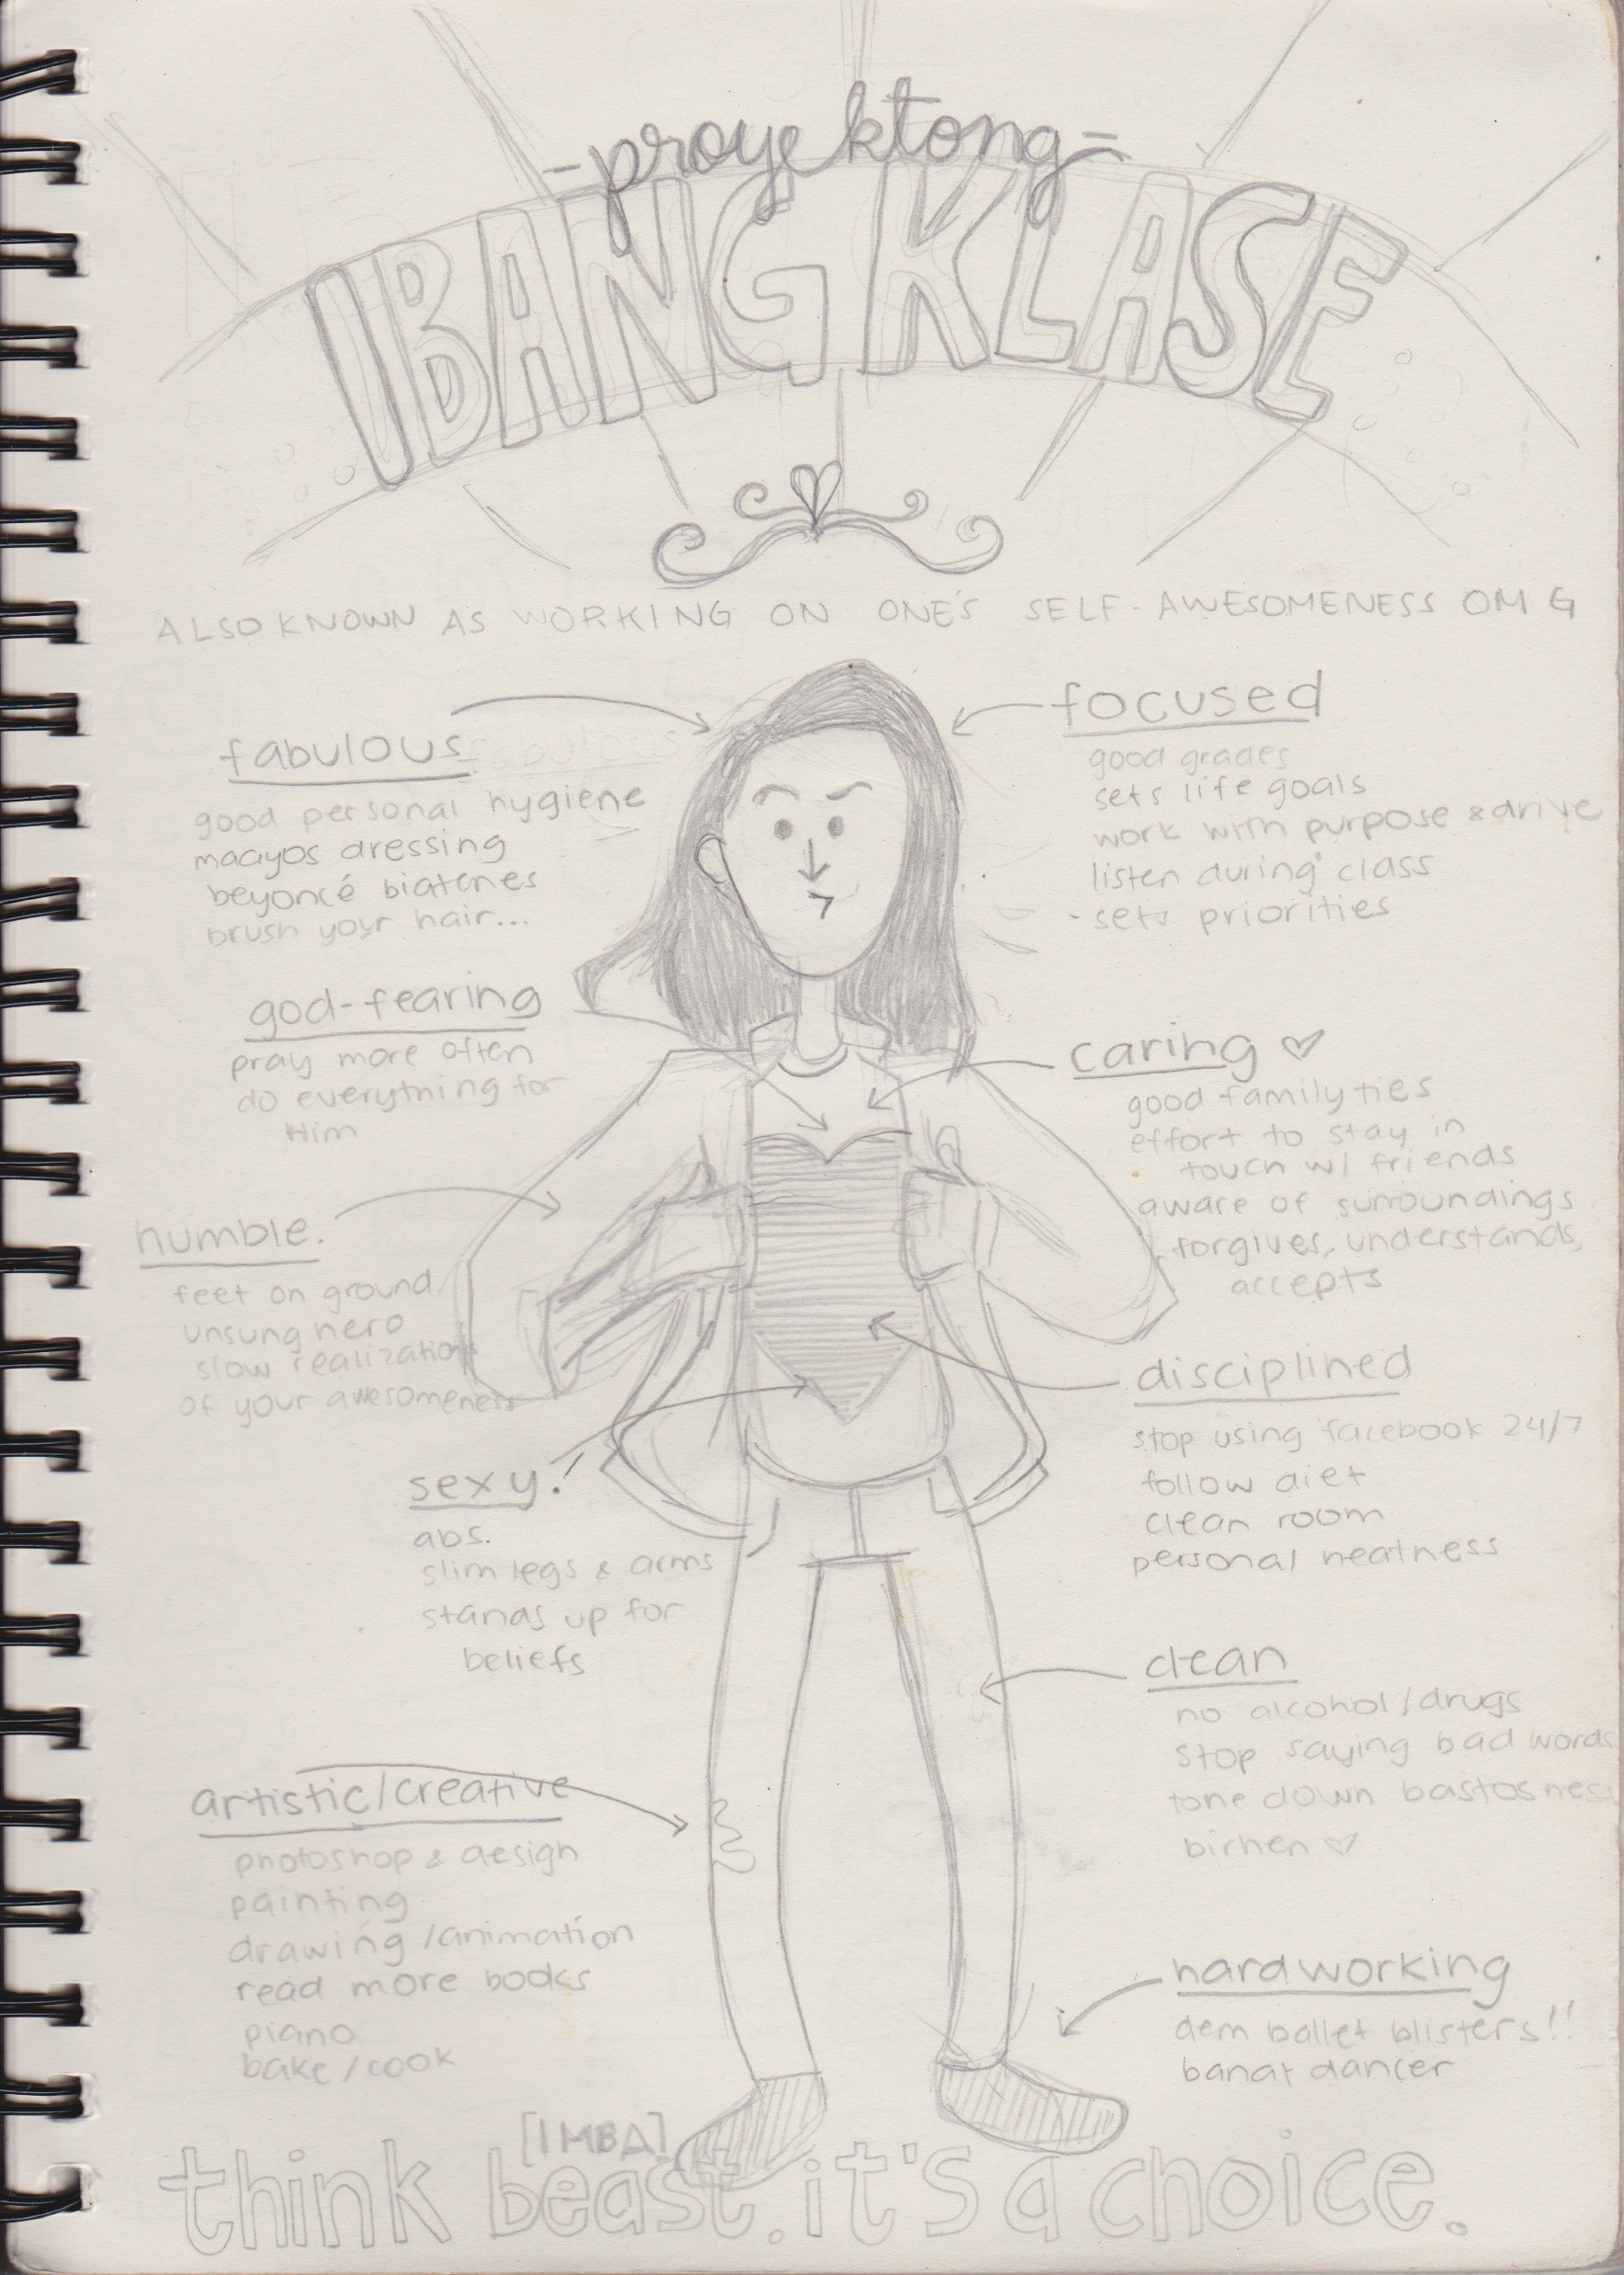 -proyektong-
IBANG KLASE
ALSO KNOWN AS WORKING ON ONE'S SELF-AWESOMENESS OMG
fabulous
good personal hygiene
maayos dressing
beyoncé biatches
brush your hair...
god-fearing
pray more often
do everything for
Him
humble.
feet on ground
unsung hero
slow realizations
of your awesomeness
sexy!
abs.
slim legs & arms
stands up for
beliefs
artistic/creative
photoshop & design
painting
drawing/animation
read more books
piano
bake/cook
focused
good grades
sets life goals
work with purpose & drive
listen during class
- sets priorities
caring ♡
good family ties
effort to stay in
touch w/ friends
aware of surroundings
forgives, understands,
accepts
disciplined
stop using facebook 24/7
follow diet
clean room
personal neatness
clean
no alcohol/drugs
stop saying bad words
tone down bastosness
birhen ♡
hardworking
dem ballet blisters!!
banat dancer
[IMBA]
think beast. it's a choice.